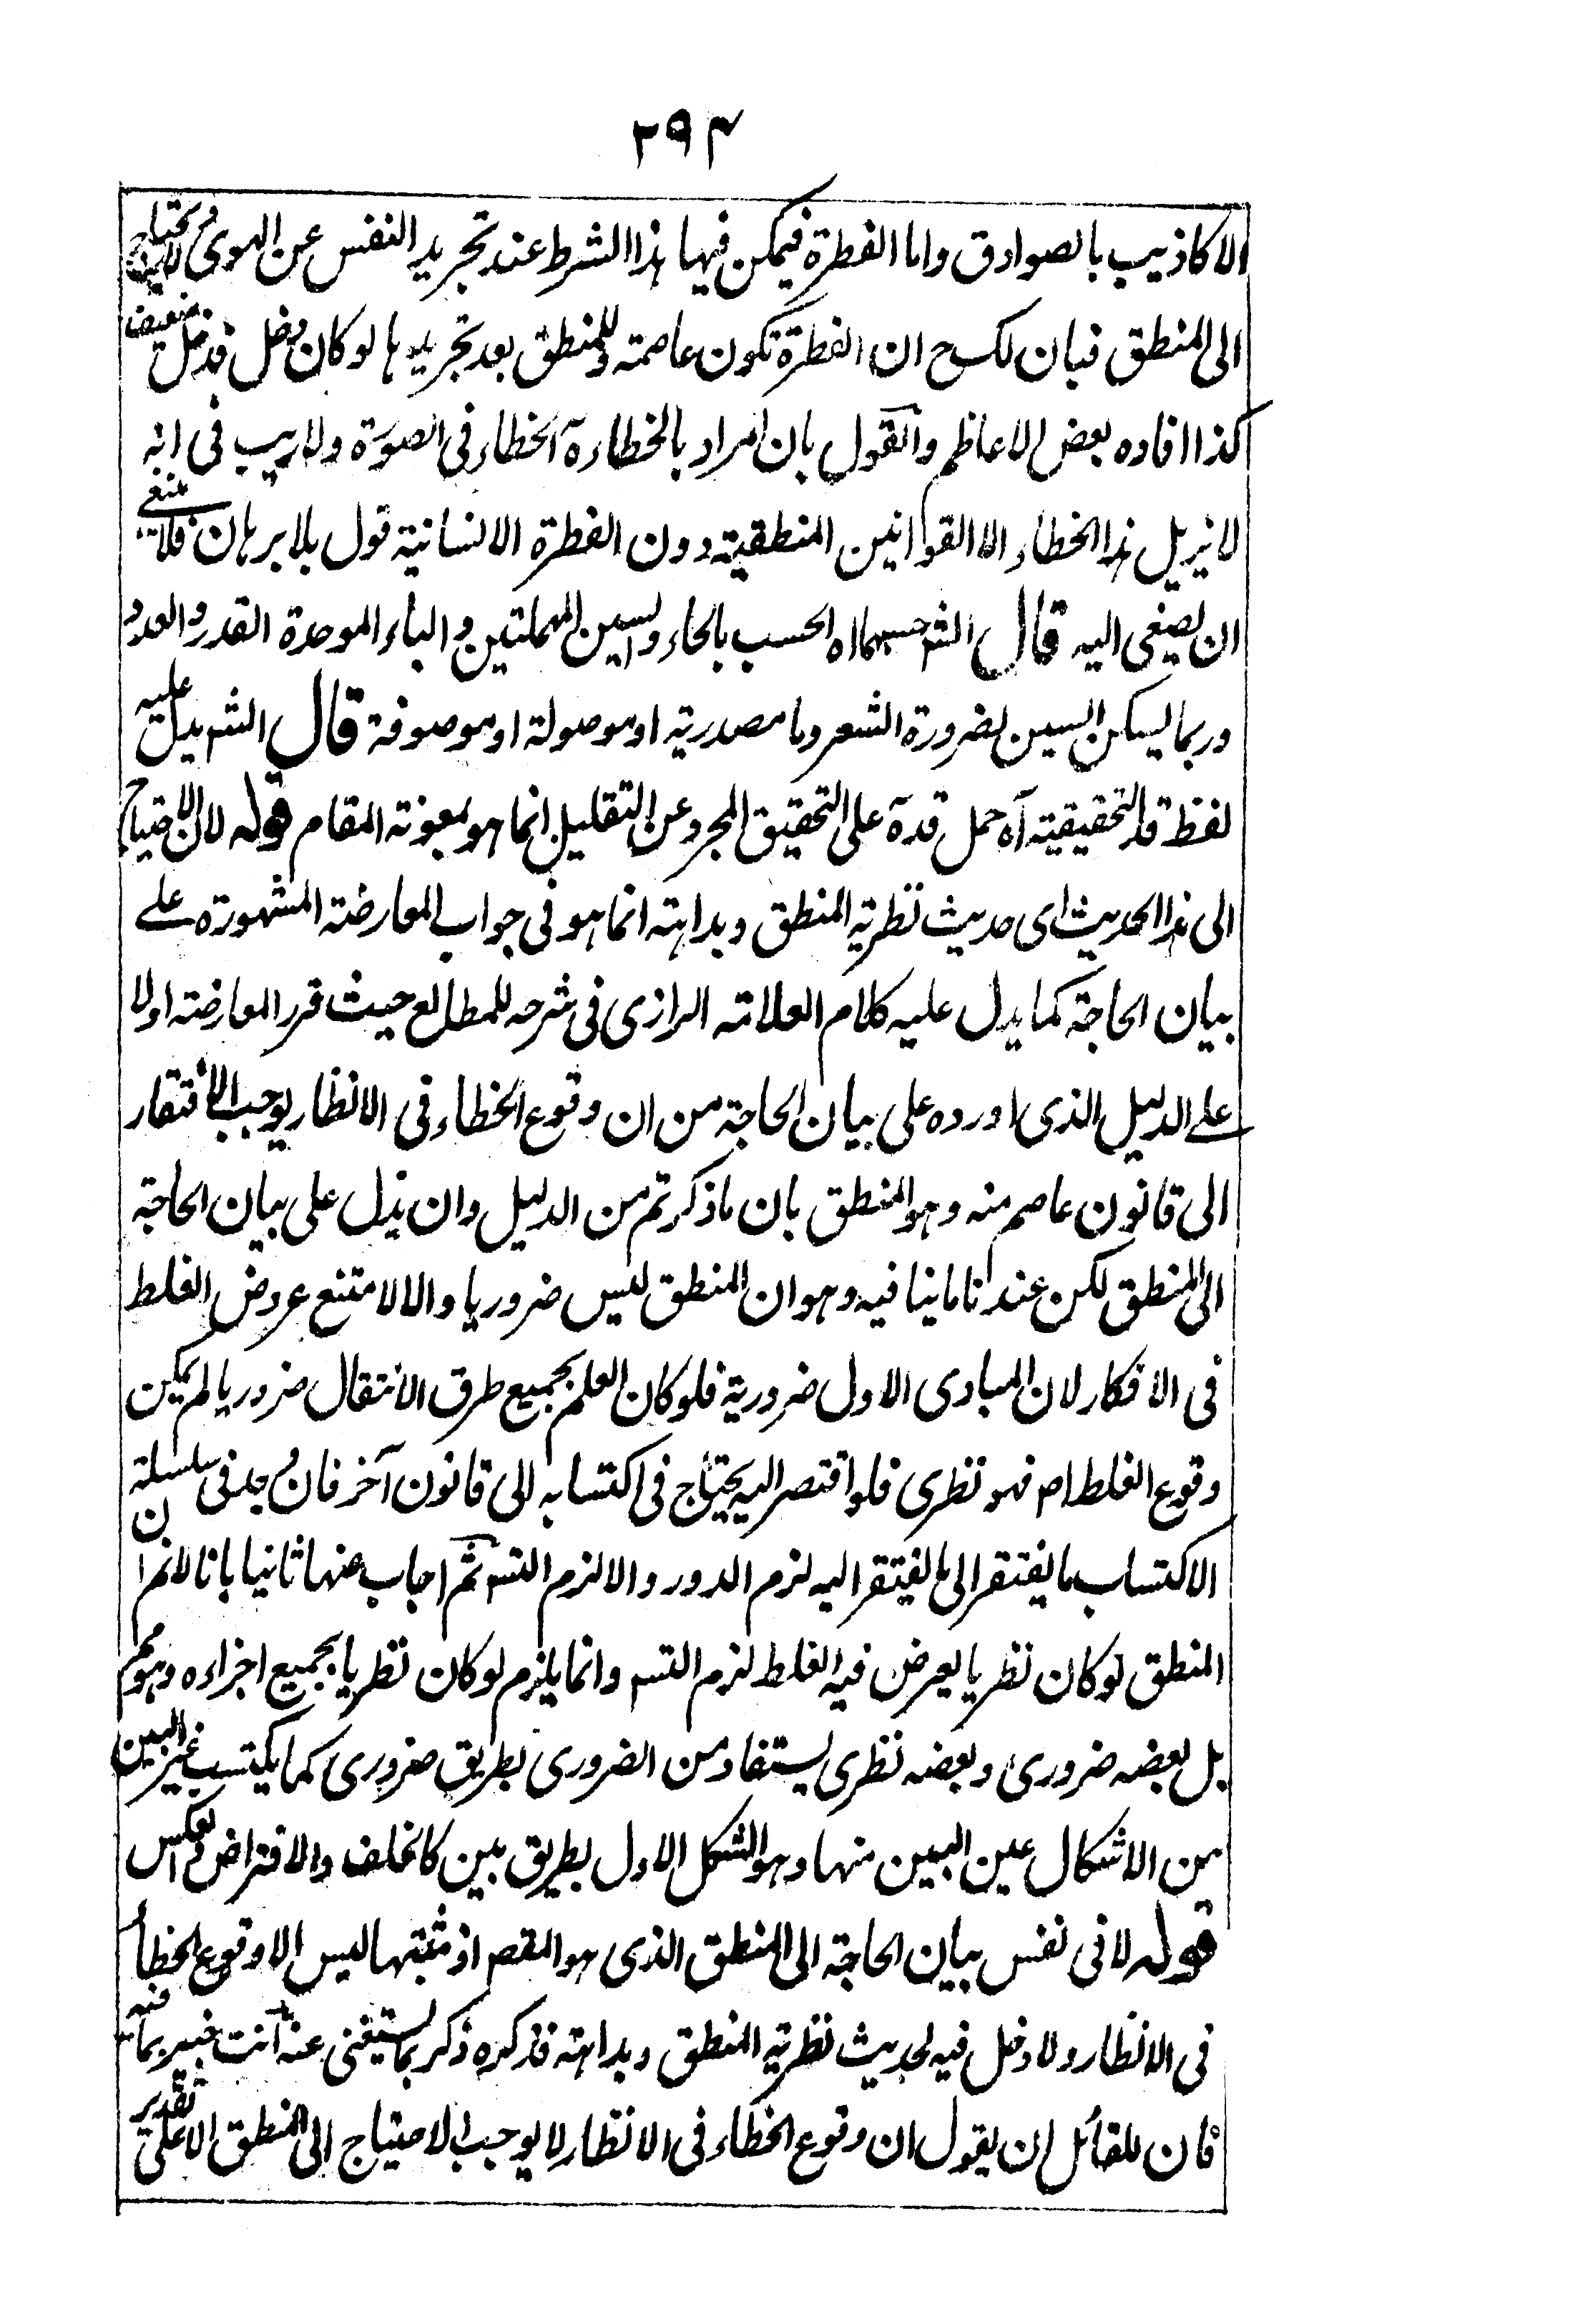 ٢٩٤
الاكاذيب بالصوادق واما الفطرة فيمكن فيها هذا الشرط عند تجريد النفس عن الهوى ولا يحتاج
الى المنطق فبان لك ح ان الفطرة تكون عاصمته وللمنطق بعد تجريدها لو كان دخل فدخل ضعيف
كذا افاده بعض الاعاظم والقول بان المراد بالخطاء ة الخطاء فى الصورة ولا ريب فى انه
لا يزيل هذا الخطاء الا القوانين المنطقية دون الفطرة الانسانية قول بلا برهان فلا ينبغى
ان يصغى اليه قال الشم حسبما اه الحسب بالحاء والسين المهملتين والباء الموحدة القدر والعدد
وربما يسكن السين لضرورة الشعر وما مصدرية او موصولة او موصوفة قال الشم يدل عليه
لفظ قد التحقيقية آه حمل قدة على التحقيق المجرد عن التقليل انما هو بمعونة المقام قوله لان الاحتياج
الى هذا الحديث اى حديث نظرية المنطق وبداهته انما هو فى جواب المعارضة المشهورة على
بيان الحاجة كما يدل عليه كلام العلامة الرازى فى شرحه للمطالع حيث قرر المعارضة اولا
على الدليل الذى اورده على بيان الحاجة من ان وقوع الخطاء فى الانظار يوجب الافتقار
الى قانون عاصم منه وهو المنطق بان ما ذكرتم من الدليل وان يدل على بيان الحاجة
الى المنطق لكن عندنا ما ينافيه وهو ان المنطق ليس ضروريا والا لامتنع عروض الغلط
فى الافكار لان المبادى الاول ضرورية فلو كان العلم بجميع طرق الانتقال ضروريا لم يكن
وقوع الغلط اص فهو نظرى فلو اقتصر اليه يحتاج فى اكتسابه الى قانون آخر فان وجد فى سلسلة
الاكتساب ما يفتقر الى ما يفتقر اليه لزم الدور والا لزم التس ثم اجاب عنها ثانيا بانا لانم ان
المنطق لو كان نظريا يعرض فيه الغلط لزم التس وانما يلزم لو كان نظريا بجميع اجزاءه وهو مم
بل بعضه ضرورى وبعضه نظرى يستفاد من الضرورى بطريق ضرورى كما يكتسب غير البين
من الاشكال عين البين منها وهو الشكل الاول بطريق بين كالخلف والافتراض والعكس
قوله لا فى نفس بيان الحاجة الى المنطق الذى هو المقص اذ مثبتها ليس الا وقوع الخطأ
فى الانظار ولا دخل فيه لحديث نظرية المنطق وبداهته فذكره ذكر بما يستغنى عنه انت خبير بما فيه
فان للقائل ان يقول ان وقوع الخطاء فى الانظار لا يوجب الاحتياج الى المنطق الا على تقدير